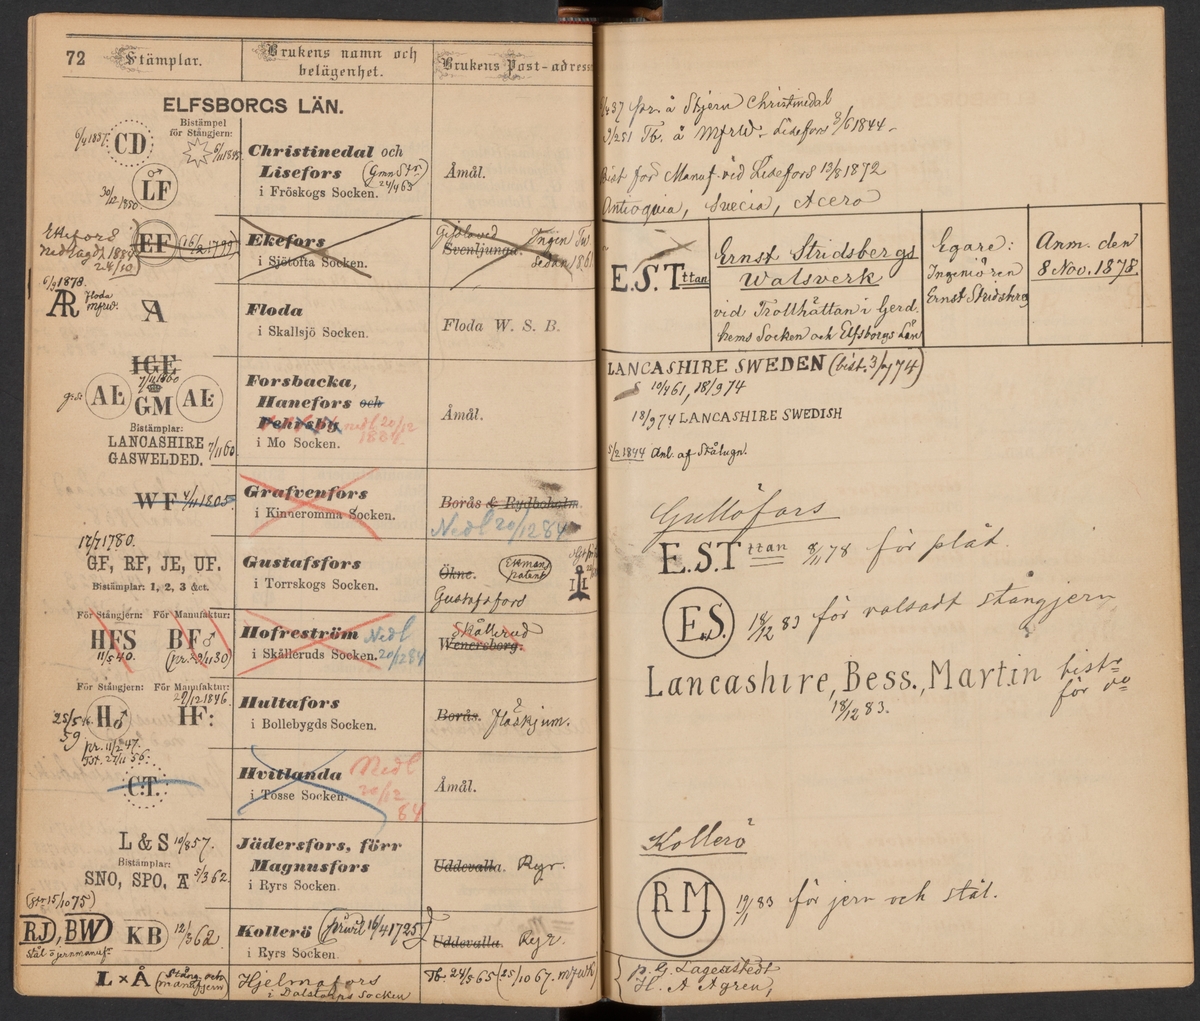 72
Stämplar.
Brukens namn och
belägenhet.
Brukens Post-adress
ELFSBORGS LÄN.
6/4 1857.
CD
Bistämpel
för Stångjern:
LF
Christinedal och
Lisefors
i Fröskogs Socken.
Åmål.
Nedlagdt 1884
EF
Ekefors
i Sjötofta Socken.
Gislaved
Svenljunga.
Ingen Tu.
Sedan 1861
6/9 1878.
Floda
mfrw.
Floda
i Skallsjö Socken.
Floda W. S. B.
IGE
7/11 1860
AL
GM
AL
Bistämplar:
LANCASHIRE 7/11 60.
GASWELDED.
Forsbacka,
Hanefors och
Pehrsby nedl 20/12
1884.
i Mo Socken.
Åmål.
WF 4/11 1805.
Grafvenfors
i Kinneromma Socken.
Borås & Rydboholm.
Nedl 20/12 84
17/7 1780.
GF, RF, JE, UF.
Bistämplar: 1, 2, 3 &ct.
Gustafsfors
i Torrskogs Socken.
Ökne.
Ekman
patent
Gustafsfors
För Stångjern: För Manufaktur:
HFS
11/5 40.
BF♂
(pr. 29/11 30)
Hofreström Nedl
i Skålleruds Socken. 20/12 84
Skållerud
Wenersborg.
För Stångjern: För Manufaktur:
29/12 1846.
H♂
HF:
59
pr. 11/2 47.
Hultafors
i Bollebygds Socken.
Borås.
C.T.
Hvitlanda Nedl
i Tösse Socken. 20/12
84
Åmål.
L & S 10/8 57.
Bistämplar:
SNO, SPO, Æ 5/3 62.
Jädersfors, förr
Magnusfors
i Ryrs Socken.
Uddevalla. Ryr.
(str 15/10 75)
RJ, BW
KB
12/3 62.
Kollerö (privil 16/4 1725)
i Ryrs Socken.
Uddevalla. Ryr.
L × Å (Stång och
manufjern)
Hjelmafors
i Dalstorps Socken
Tb. 24/5 65 (25/10 67. mfrwk)
437 pr. å Stjern Christinedal
9/251 Tb. å Mfrw. Lisefors 8/6 1844
Bist för Manuf. vid Lisefors 13/8 1872
Antioquia, Suecia, Acero
E.S.Tttan
Ernst Stridsbergs
Walsverk
vid Trollhättan i Gerd-
hems Socken och Elfsborgs Län
Egare:
Ingeniören
Ernst Stridsberg
Anm. den
8 Nov. 1878.
LANCASHIRE SWEDEN (bist. 3/7 74)
S 10/4 61, 18/9 74
18/9 74 LANCASHIRE SWEDISH
5/2 1844 Anl. af Stålugn.
Gullöfors
E.S.Tttan 8/11 78 för plåt.
E.S. 18/12 83 för valsadt stångjern
Lancashire, Bess., Martin bist.
för do
18/12 83.
Kollerö
RM 19/1 83 för jern och stål.
p. G. Lagerstedt
H. A Ågren,